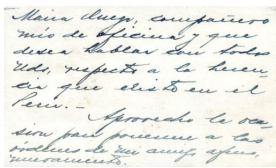 Maria Luega, compañero
mio de oficina y que
desea hablar con todos
Uds, respecto a la heren
cia que existe en el
Peru.-
Aprovecho la oca
sion para ponerme a las
ordenes de mi amigo
nuevamente.